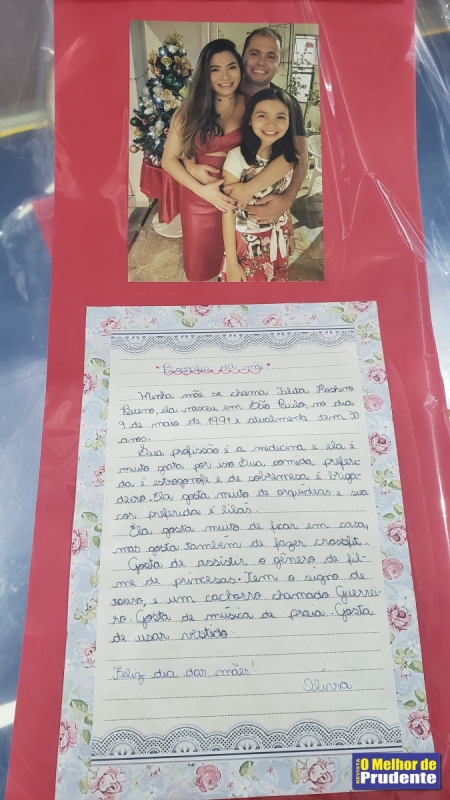 Minha mãe se chama Talita Roshino
Bueno, ela nasceu em São Paulo, no dia
9 de maio de 1991 e atualmente tem 30
anos.
Sua profissão é a medicina e ela é
muito grata por isso. Sua comida preferi-
da é estrogonofe e de sobremesa é briga-
deiro. Ela gosta muito de orquídeas e sua
cor preferida é lilás.
Ela gosta muito de ficar em casa,
mas gosta também de fazer crossfit.
Gosta de assistir o gênero de fil-
me de princesas. Tem o signo de
touro, e um cachorro chamado Guerrei-
ro. Gosta de música de praia. Gosta
de usar vestido.
Feliz dia das mães!
REVISTA
O Melhor de
Prudente